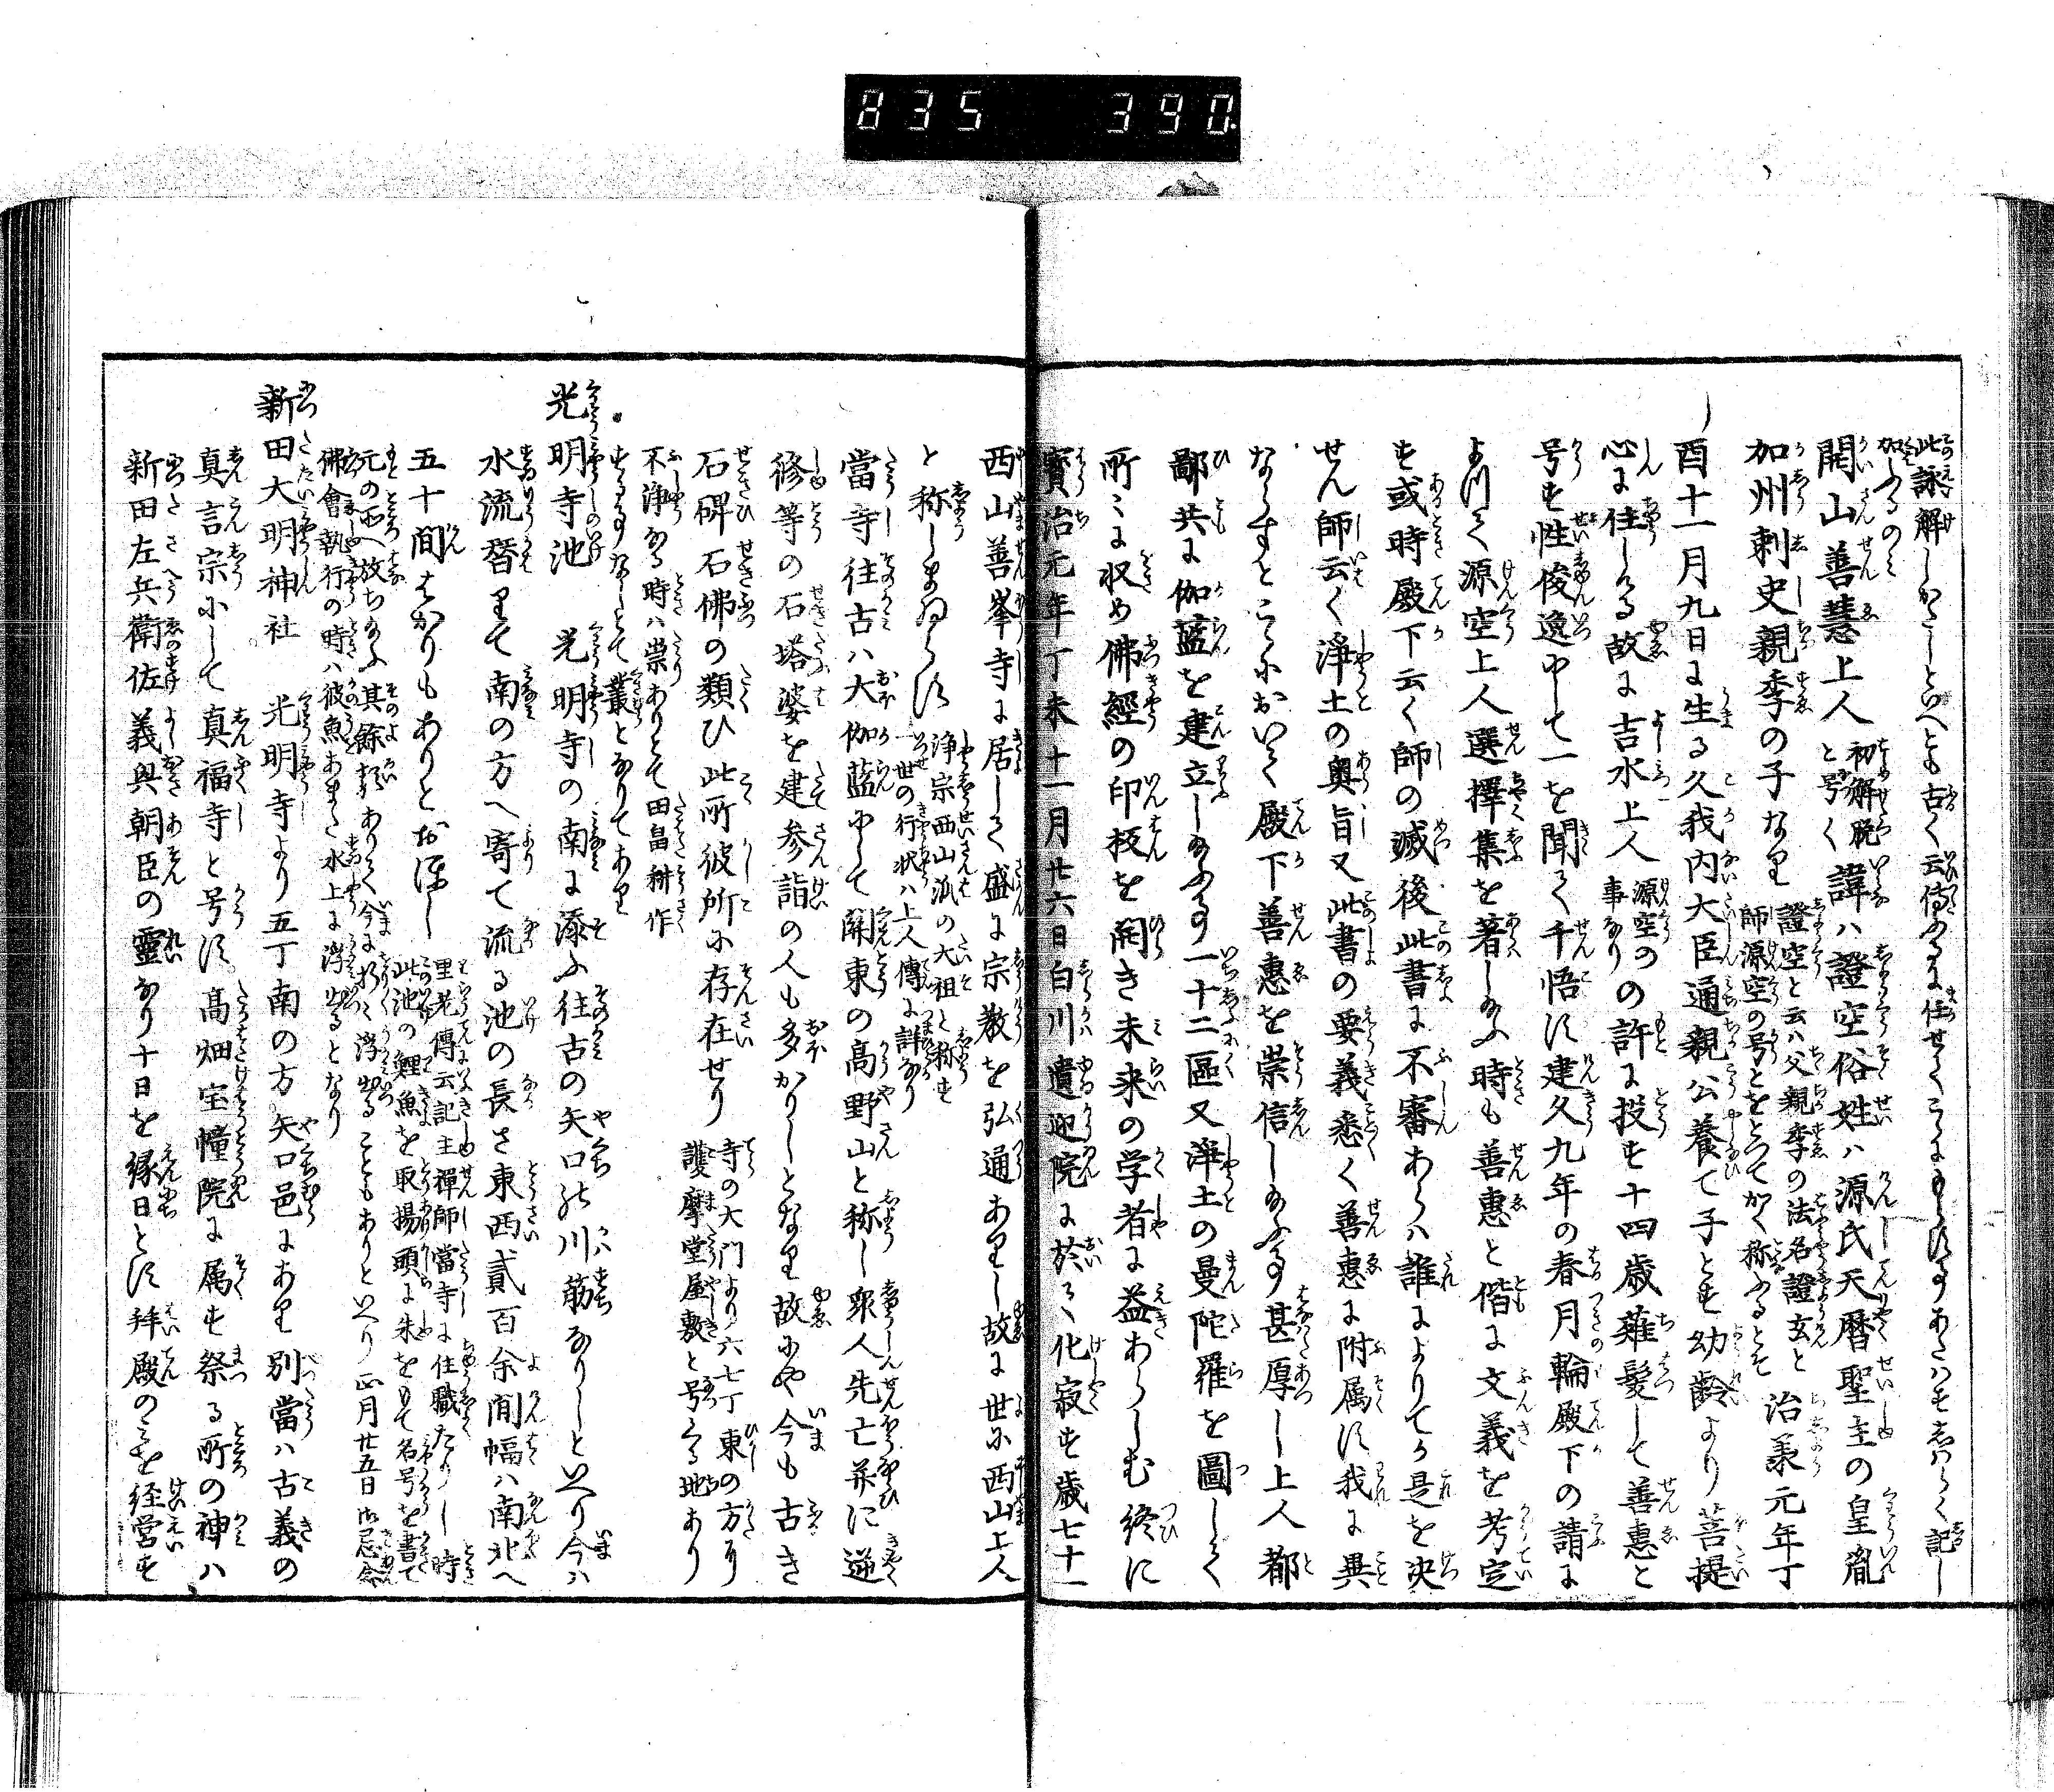 835 390
此詠解しがたしといへとも古く云傳ふるに任せてこゝにもらさすあたハすしハらく記し
加ふるのミ
開山善慧上人
初解脱
と号く
諱ハ證空俗姓ハ源氏天暦聖主の皇胤
加州刺史親季の子なり
證空と云ハ父親季の法名證玄と
師源空の号とをとつてかく称ふるとそ
治承元年丁
酉十一月九日に生る久我内大臣通親公養て子とす幼齢より菩提
心に住しける故に吉水上人
源空の
事なり
の許に投す十四歳薙髪して善惠と
号す性俊逸にして一を聞て千悟す建久九年の春月輪殿下の請に
よつて源空上人選擇集を著し給ふ時も善惠と偕に文義を考定
す或時殿下云く師の滅後此書に不審あらハ誰によりてか是を決
せん師云く浄土の奥旨又此書の要義悉く善惠に附属す我に異
ならすとこゝにおいて殿下善惠を崇信し給ふ事甚厚し上人都
鄙共に伽藍を建立し給ふ事一十二區又浄土の曼陀羅を圖して
所々に収め佛經の印板を開き未来の学者に益あらしむ終に
寳治元年丁未十一月廿六日白川遣迎院に於て化寂す歳七十一
西山善峯寺に居して盛に宗教を弘通ありし故に世に西山上人
と称しまゐらす
浄宗西山派の大祖と称す
一世の行状ハ上人傳に詳なり
當寺往古ハ大伽藍にして関東の高野山と称し衆人先亡并に逆
修等の石塔婆を建参詣の人も多かりしとなり故にや今も古き
石碑石佛の類ひ此所彼所に存在せり
寺の大門より六七丁東の方に
護摩堂屋敷と号くる地あり
不浄なる時ハ祟ありとて田畠耕作
することなしとて叢となりてあり
光明寺池 光明寺の南に添ふ往古の矢口の川筋なりしといへり今ハ
水流替りて南の方へ寄て流る池の長さ東西貳百余間幅ハ南北へ
五十間はかりもありとおほし
里老傳云記主禅師當寺に住職たりし時
此池の鯉魚を取揚頭に朱をもて名号を書て
元の所へ放ち給ふ其餘類ありて今に折々浮出ることもありといへり正月廿五日御忌念
佛會執行の時ハ彼魚あまた水上に浮出るとなり
新田大明神社 光明寺より五丁南の方矢口邑にあり別當ハ古義の
真言宗にして真福寺と号す高畑宝幢院に属す祭る所の神ハ
新田左兵衛佐義興朝臣の靈なり十日を縁日とす拜殿のミを経営す